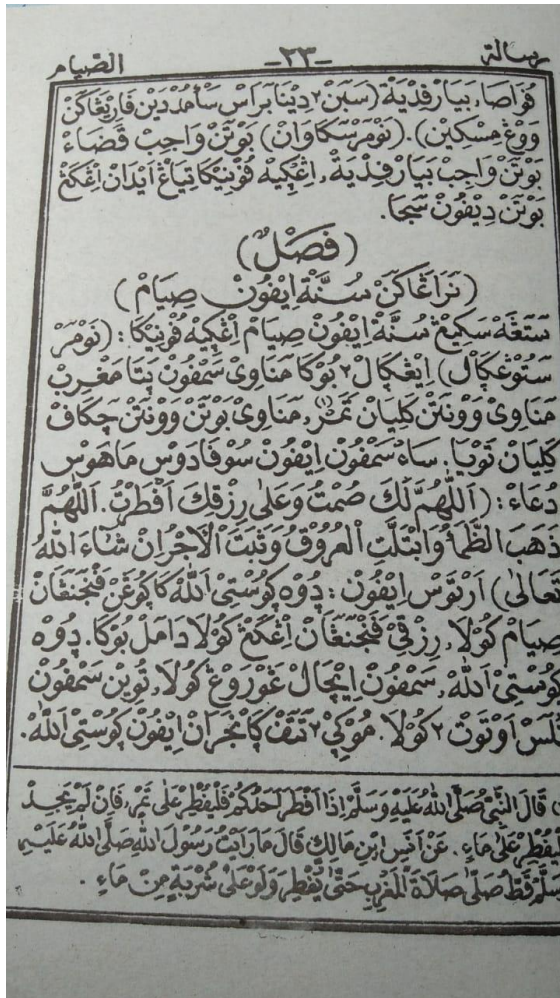 رسالة -٢٣- الصّيام
فُوَاصَا، بَيَارْ فِدْيَةْ (سَبَنْ٢ دِيْنَا بَرَاسْ سَأَمُدْ دَيْنْ فَارِيْڠَاكَنْ
وَوْڠْ مِسْكِيْنْ). (نَوْمَرْ سَكَاوَانْ) بَوْتَنْ وَاجِبْ قَضَاءْ
بَوْتَنْ وَاجِبْ بَيَارْ فِدْيَةْ، اِڠْكِيْهْ فُوْنِيْكَا تِيَاڠْ اَيْدَانْ اِڠْكَڠْ
بَوْتَنْ دِيْفُوْنْ سَجَا.
(فَصْلٌ)
(نَرَاڠَاكَنْ سُنَّةْ اِيْفُوْنْ صِيَامْ)
سَتَڠَهْ سَكِيْڠْ سُنَّةْ اِيْفُوْنْ صِيَامْ اِڠْكِيْهْ فُوْنِيْكَا: (نَوْمَرْ
سَتُوْڠْكَالْ) اِيْڠْكَالْ٢ بُوْكَا مَنَاوِيْ سَمْفُوْنْ پَتَا مَغْرِبْ
مَنَاوِيْ وَوْنَتَنْ كَلِيَانْ تَمَرْ(١)، مَنَاوِيْ بَوْتَنْ وَوْنَتَنْ چَكَافْ
كَلِيَانْ تَوْيَا. سَاءْ سَمْفُوْنْ اِيْفُوْنْ سُوْفَادَوْسْ مَاهَوْسْ
دُعَاءْ: (اَللّٰهُمَّ لَكَ صُمْتُ وَعَلٰى رِزْقِكَ اَفْطَرْتُ. اَللّٰهُمَّ
ذَهَبَ الظَّمَأُ وَابْتَلَّتِ الْعُرُوْقُ وَثَبَتَ الْاَجْرُ اِنْ شَاءَ اللّٰهُ
تَعَالٰى) اَرْتَوْسْ اِيْفُوْنْ: دُوْهْ كُوْسْتِيْ اَللّٰهْ كَاكُوْڠَنْ فَنْجَنَڠَانْ
صِيَامْ كُوْلَا، رِزْقِيْ فَنْجَنَڠَانْ اِڠْكَڠْ كُوْلَا دَامَلْ بُوْكَا. دُوْهْ
كُوْسْتِيْ اَللّٰهْ، سَمْفُوْنْ اِيْچَالْ ڠَوْرَوْڠْ كُوْلَا، تُوِيْنْ سَمْفُوْنْ
تَلَسْ اَوْتَوْتْ٢ كُوْلَا. مُوْكِيْ٢ تَتَفْ كَاݢَنْجَرَانْ اِيْفُوْنْ كُوْسْتِيْ اَللّٰهْ.
قَالَ النَّبِيُّ صَلَّى اللّٰهُ عَلَيْهِ وَسَلَّمَ اِذَا اَفْطَرَ اَحَدُكُمْ فَلْيُفْطِرْ عَلٰى تَمْرٍ، فَاِنْ لَمْ يَجِدْ
فَلْيُفْطِرْ عَلٰى مَاءٍ. عَنْ اَنَسِ ابْنِ مَالِكٍ قَالَ مَا رَاَيْتُ رَسُوْلَ اللّٰهِ صَلَّى اللّٰهُ عَلَيْهِ
وَسَلَّمَ قَطُّ صَلّٰى صَلَاةَ الْمَغْرِبِ حَتّٰى يُفْطِرَ وَلَوْ عَلٰى شُرْبَةٍ مِنْ مَاءٍ.